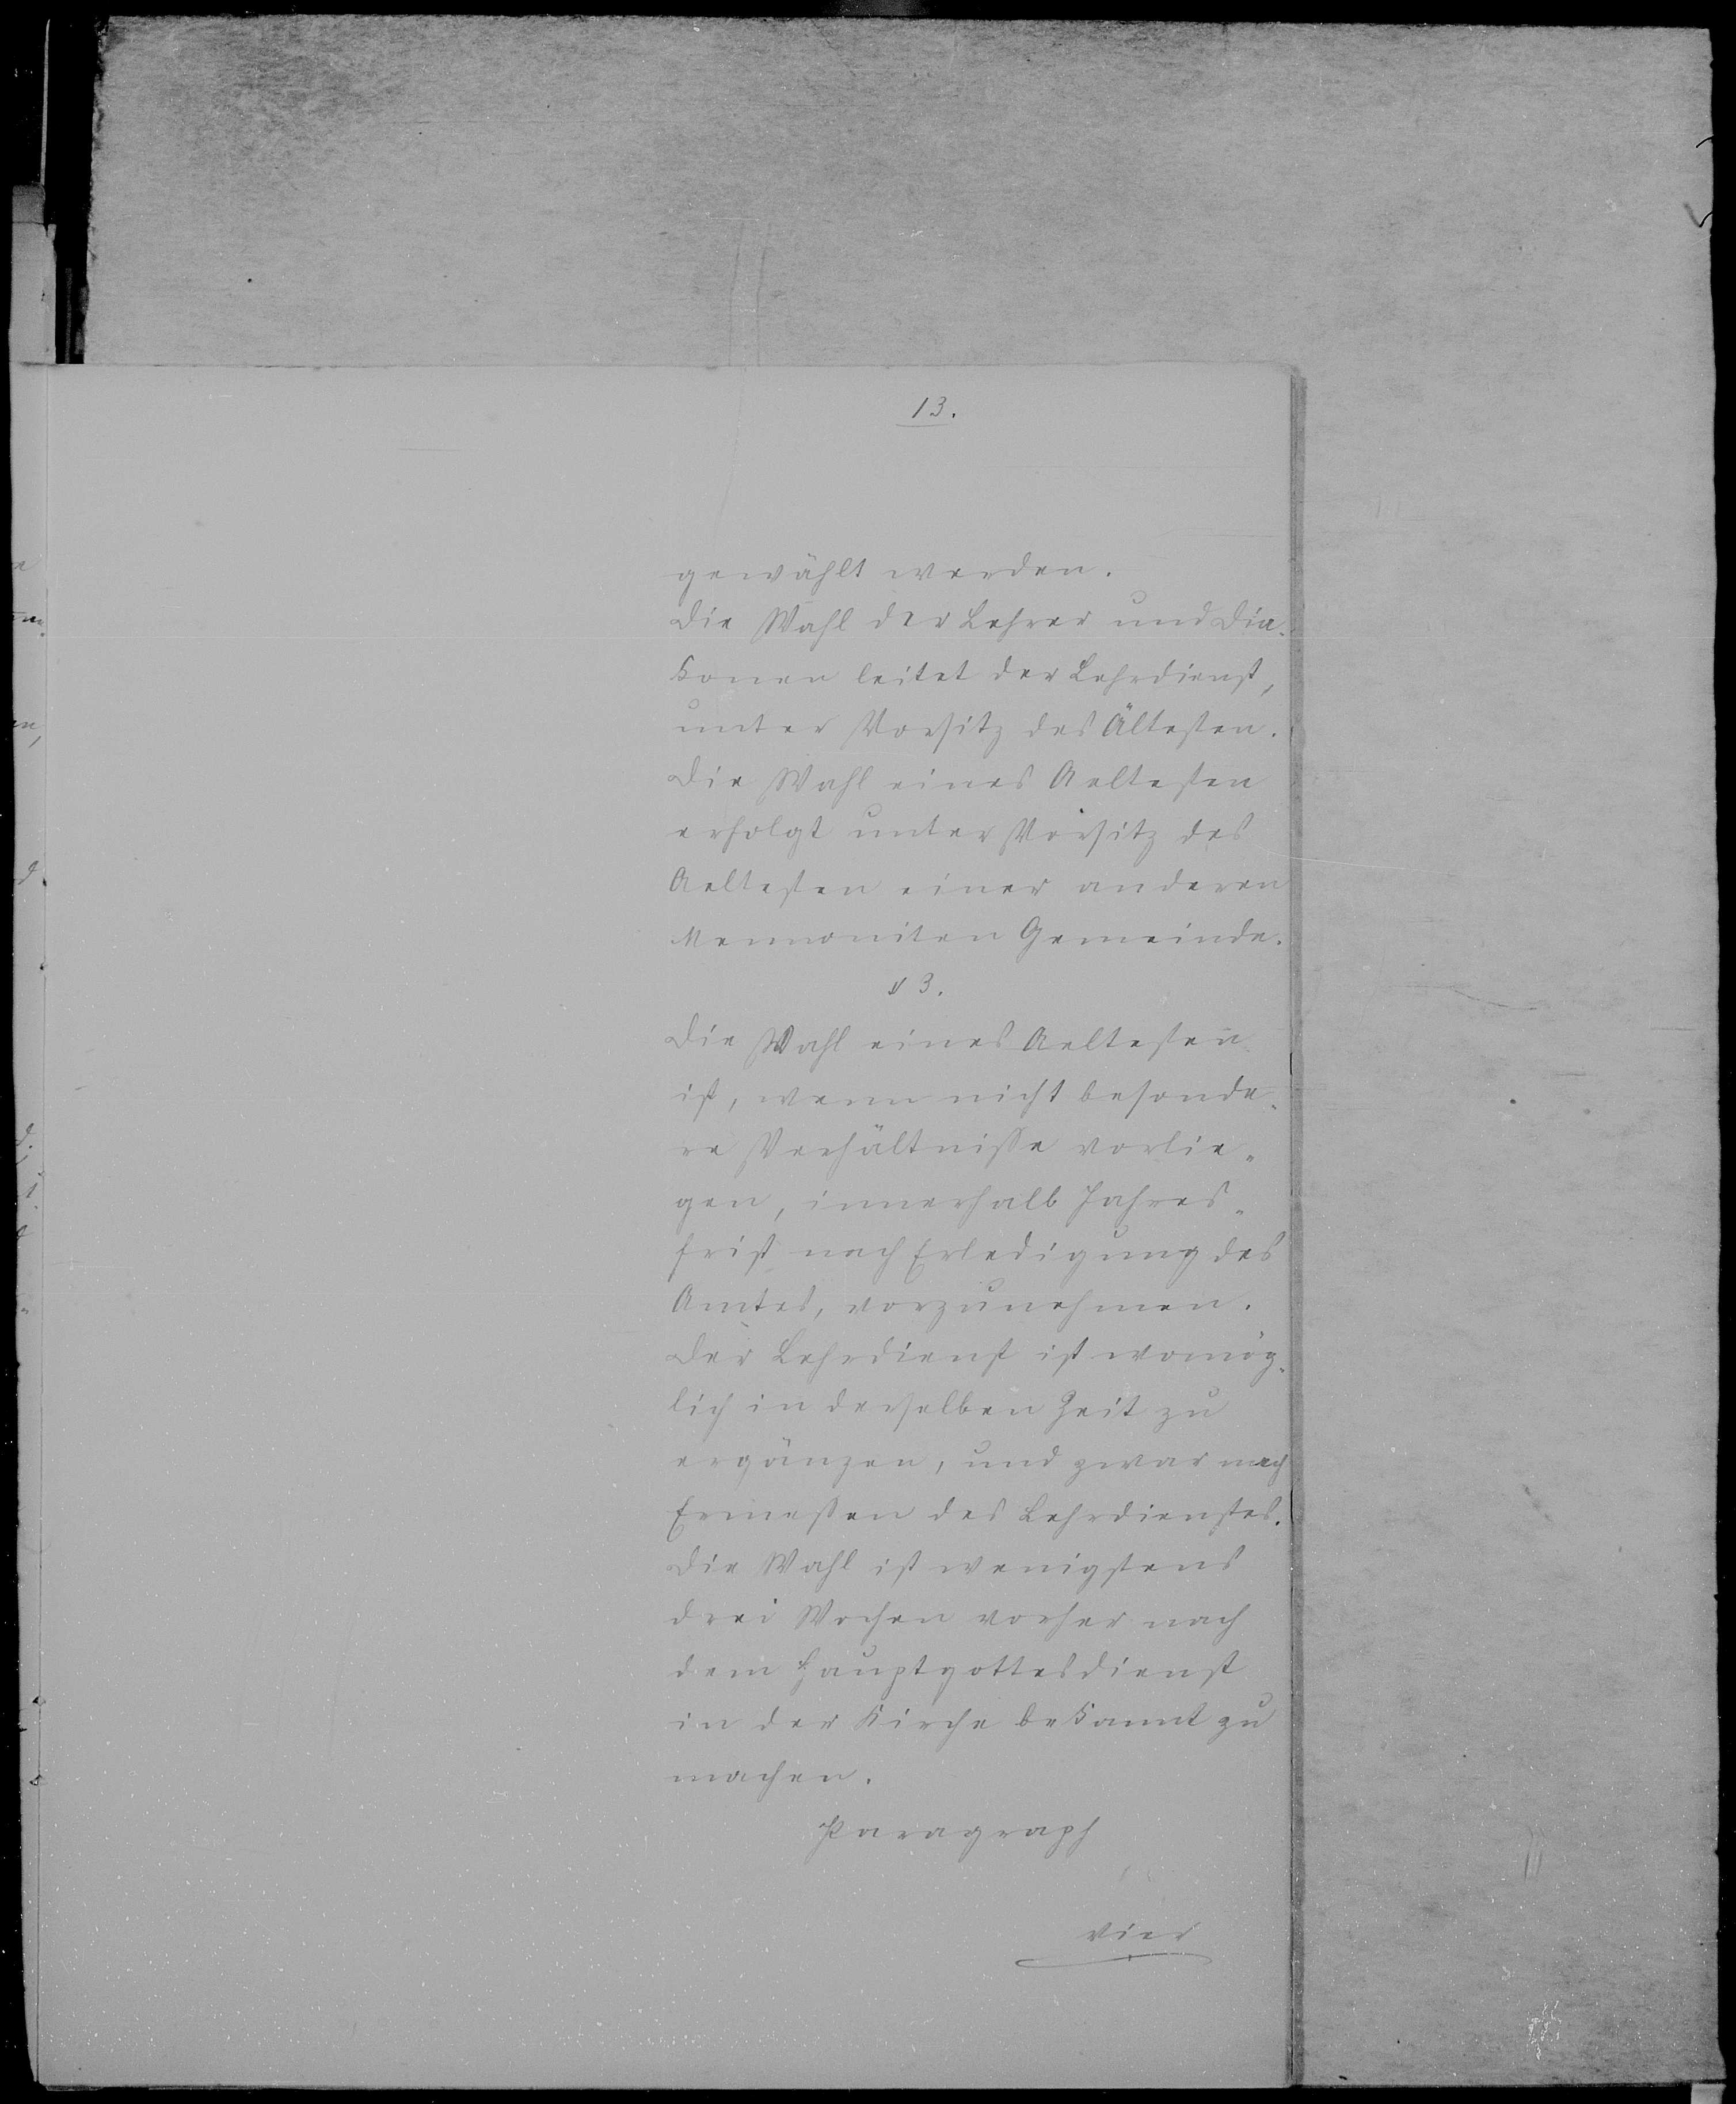 13.
gewählt werden.
Die Wahl der Lehrer und Dia-
konen leitet der Lehrdienst,
unter Vorsitz des Ältesten.
Die Wahl eines Aeltesten
erfolgt unter Vorsitz des
Aeltesten einer anderen
Mennoniten Gemeinde.
§ 3.
Die Wahl eines Aeltesten
ist, wenn nicht besonde-
re Verhältnisse vorlie-
gen, innerhalb Jahres-
frist nach Erledigung des
Amtes, vorzunehmen.
Der Lehrdienst ist womög-
lich in derselben Zeit zu
ergänzen, und zwar nach
Ermessen des Lehrdienstes.
Die Wahl ist wenigstens
drei Wochen vorher nach
dem Hauptgottesdienst
in der Kirche bekannt zu
machen.
Paragraph
vier